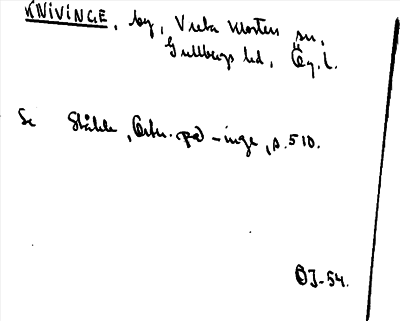 KNIVINGE, by, Vreta klosters sn,
Gullbergs hd, Ög. l.
Se Ståhle, Ortn. på -inge, s. 510.
OJ-54.